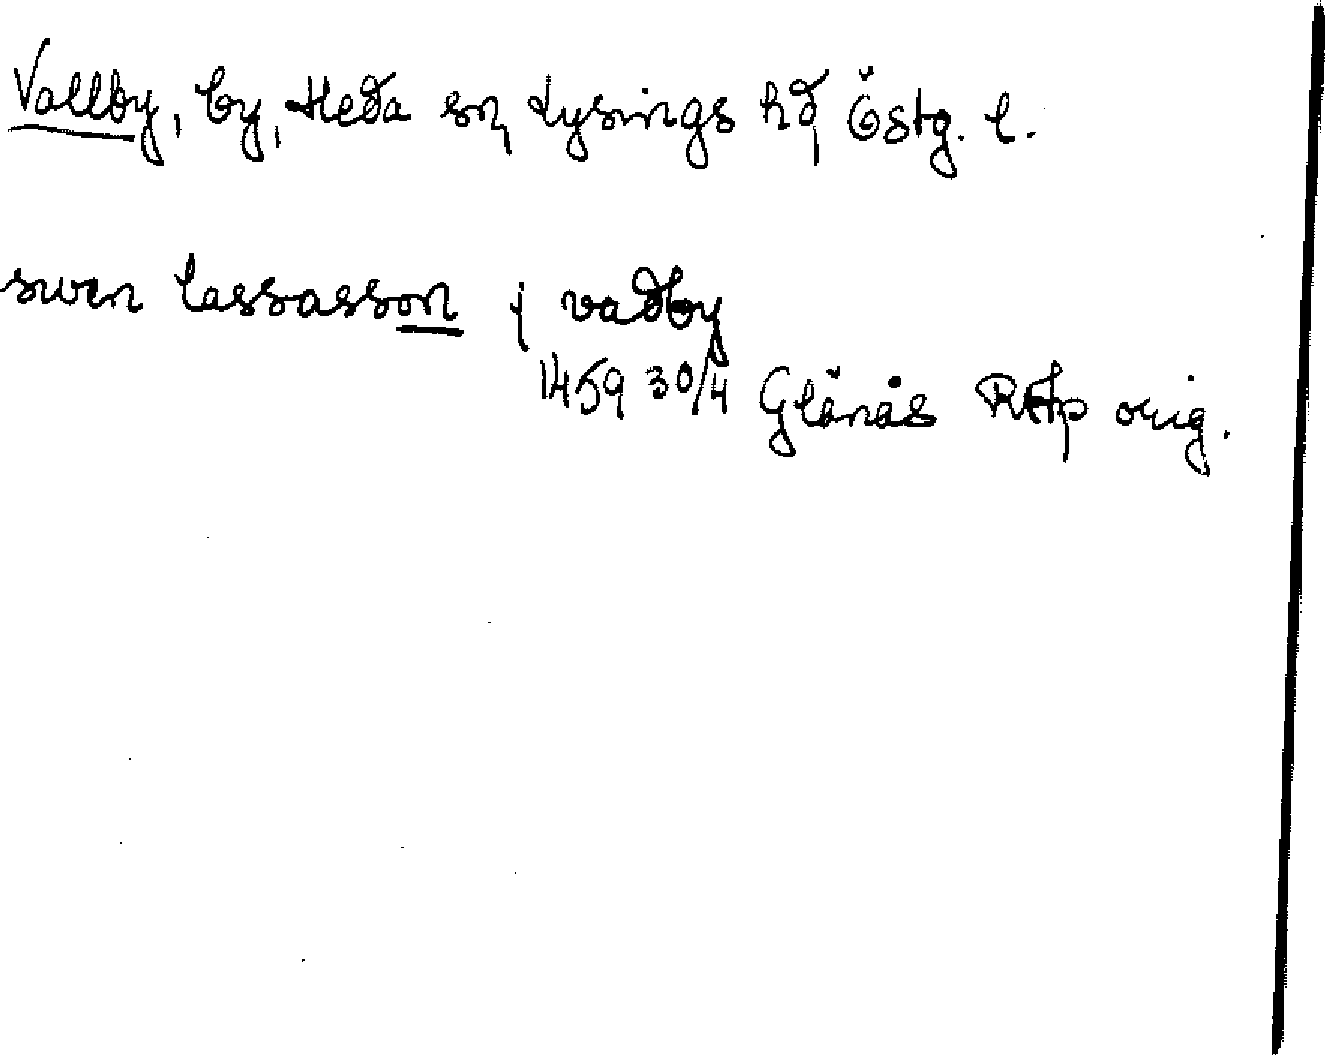 Vallby, by, Heda sn, Lysings hd, Östg. l.
swen lassasson j vadby
1459 30/4 Glänås RAp orig.